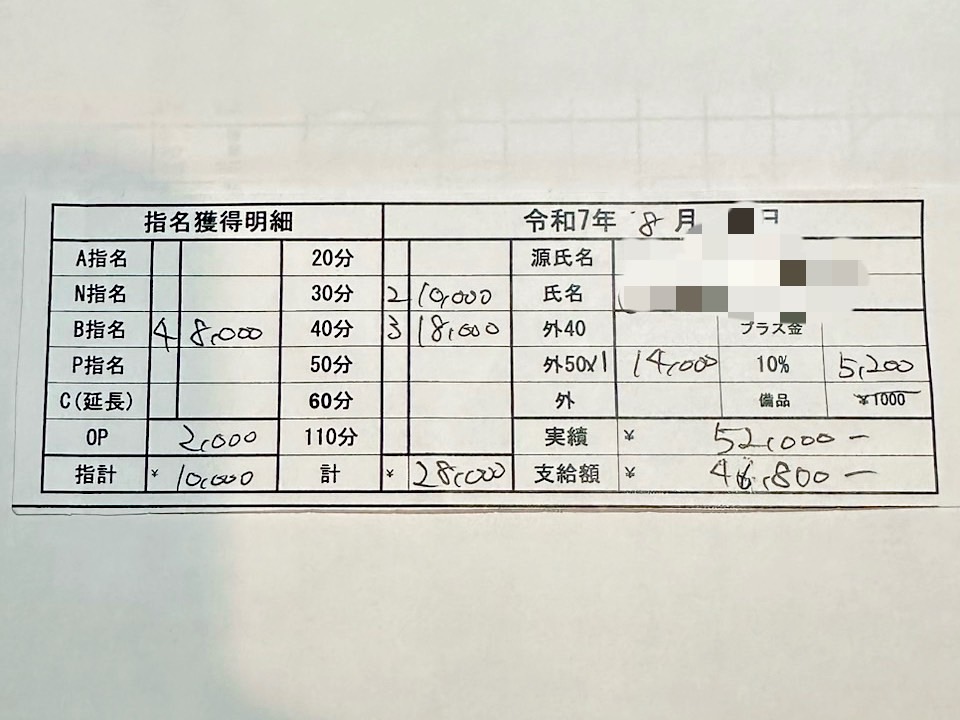 指名獲得明細 令和7年 8月 日
A指名 20分 源氏名
N指名 30分 2 10,000 氏名
B指名 4 8,000 40分 3 18,000 外40 プラス金
P指名 50分 外50x1 14,000 10% 5,200
C(延長) 60分 外 備品 ¥1000
OP 2,000 110分 実績 ¥ 52,000-
指計 ¥ 10,000 計 ¥ 28,000 支給額 ¥ 46,800-